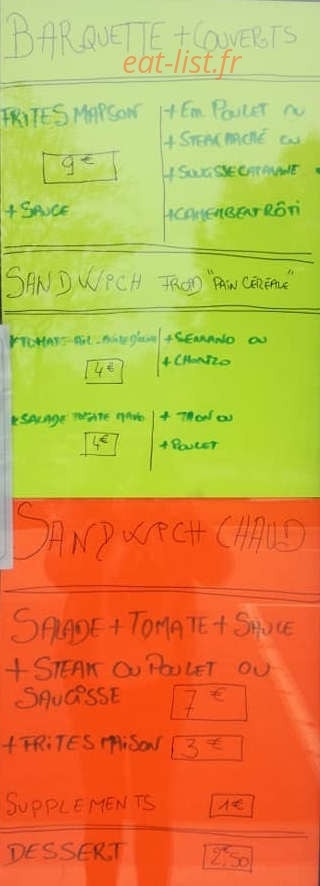 BARQUETTE + COUVERTS
eat-list.fr
FRITES MAISON
9€
+ SAUCE
+ Em. POULET OU
+ STEAK HACHÉ OU
+ SAUCISSE CATALANE
+ CAMEMBERT RÔTI
SANDWICH FROID "PAIN CÉRÉALE"
+ TOMATE - AIL - HUILE D'OLIVE
4€
+ SERRANO OU
+ CHORIZO
+ SALADE TOMATE MAYO
4€
+ THON OU
+ POULET
SANDWICH CHAUD
SALADE + TOMATE + SAUCE
+ STEAK OU POULET OU
SAUCISSE 7€
+ FRITES MAISON 3€
SUPPLEMENTS 1€
DESSERT 2€50